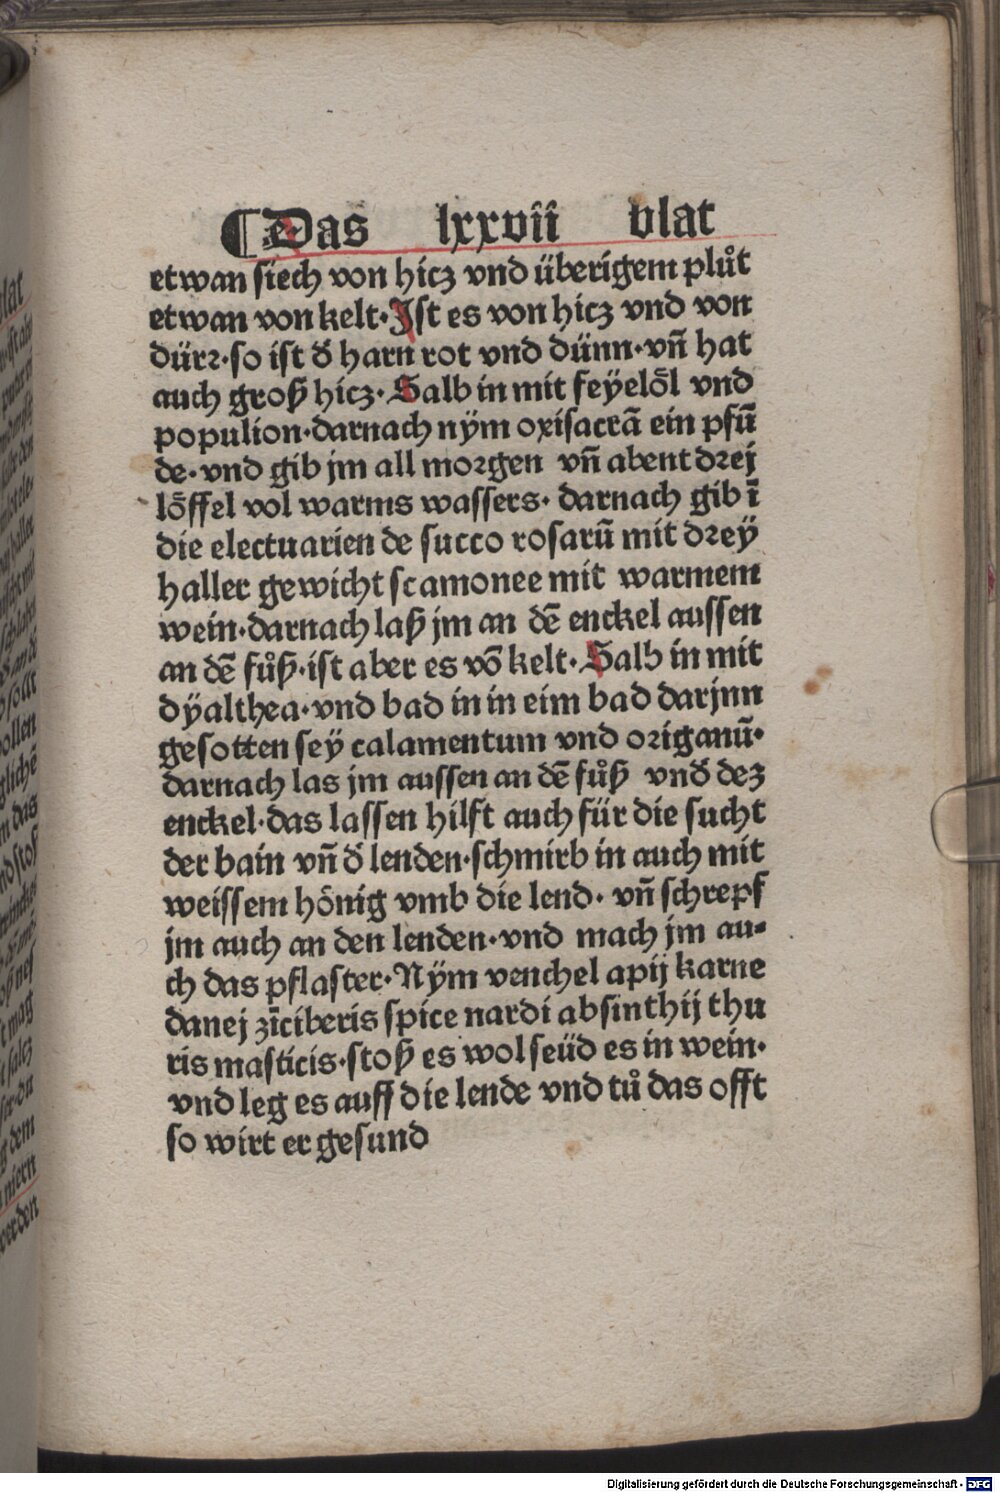 ¶Das lxxvii blat
etwan siech von hicz vnd überigem plůt
etwan von kelt·Ist es von hicz vnd von
dürꝛ·so ist ď harn rot vnd dünn·vn̄ hat
auch groß hicz·Salb in mit feÿelöl vnd
populion·darnach nÿm oxisacrā ein pfū
de·vnd gib jm all moꝛgen vn̄ abent dꝛej
löffel vol warms wassers·darnach gib ī
die electuarien de succo rosarū mit dꝛeÿ
haller gewicht scamonee mit warmem
wein·darnach laß jm an dē enckel aussen
an dē fůß·ist aber es vō kelt·Salb in mit
dÿalthea·vnd bad in in eim bad darjnn
gesotten seÿ calamentum vnd oꝛiganū·
darnach las jm aussen an dē fůß vnď dez
enckel·das lassen hilft auch für die sucht
der bain vn̄ ď lenden·schmirb in auch mit
weissem hönig vmb die lend·vn̄ schrepf
jm auch an den lenden·vnd mach jm au-
ch das pflaster·Nÿm venchel apij karue
danej zīciberis spice nardi absinthij thu
ris masticis·stoß es wol seüd es in wein·
vnd leg es auff die lende vnd tů das offt
so wirt er gesund
Digitalisierung gefördert durch die Deutsche Forschungsgemeinschaft - DFG